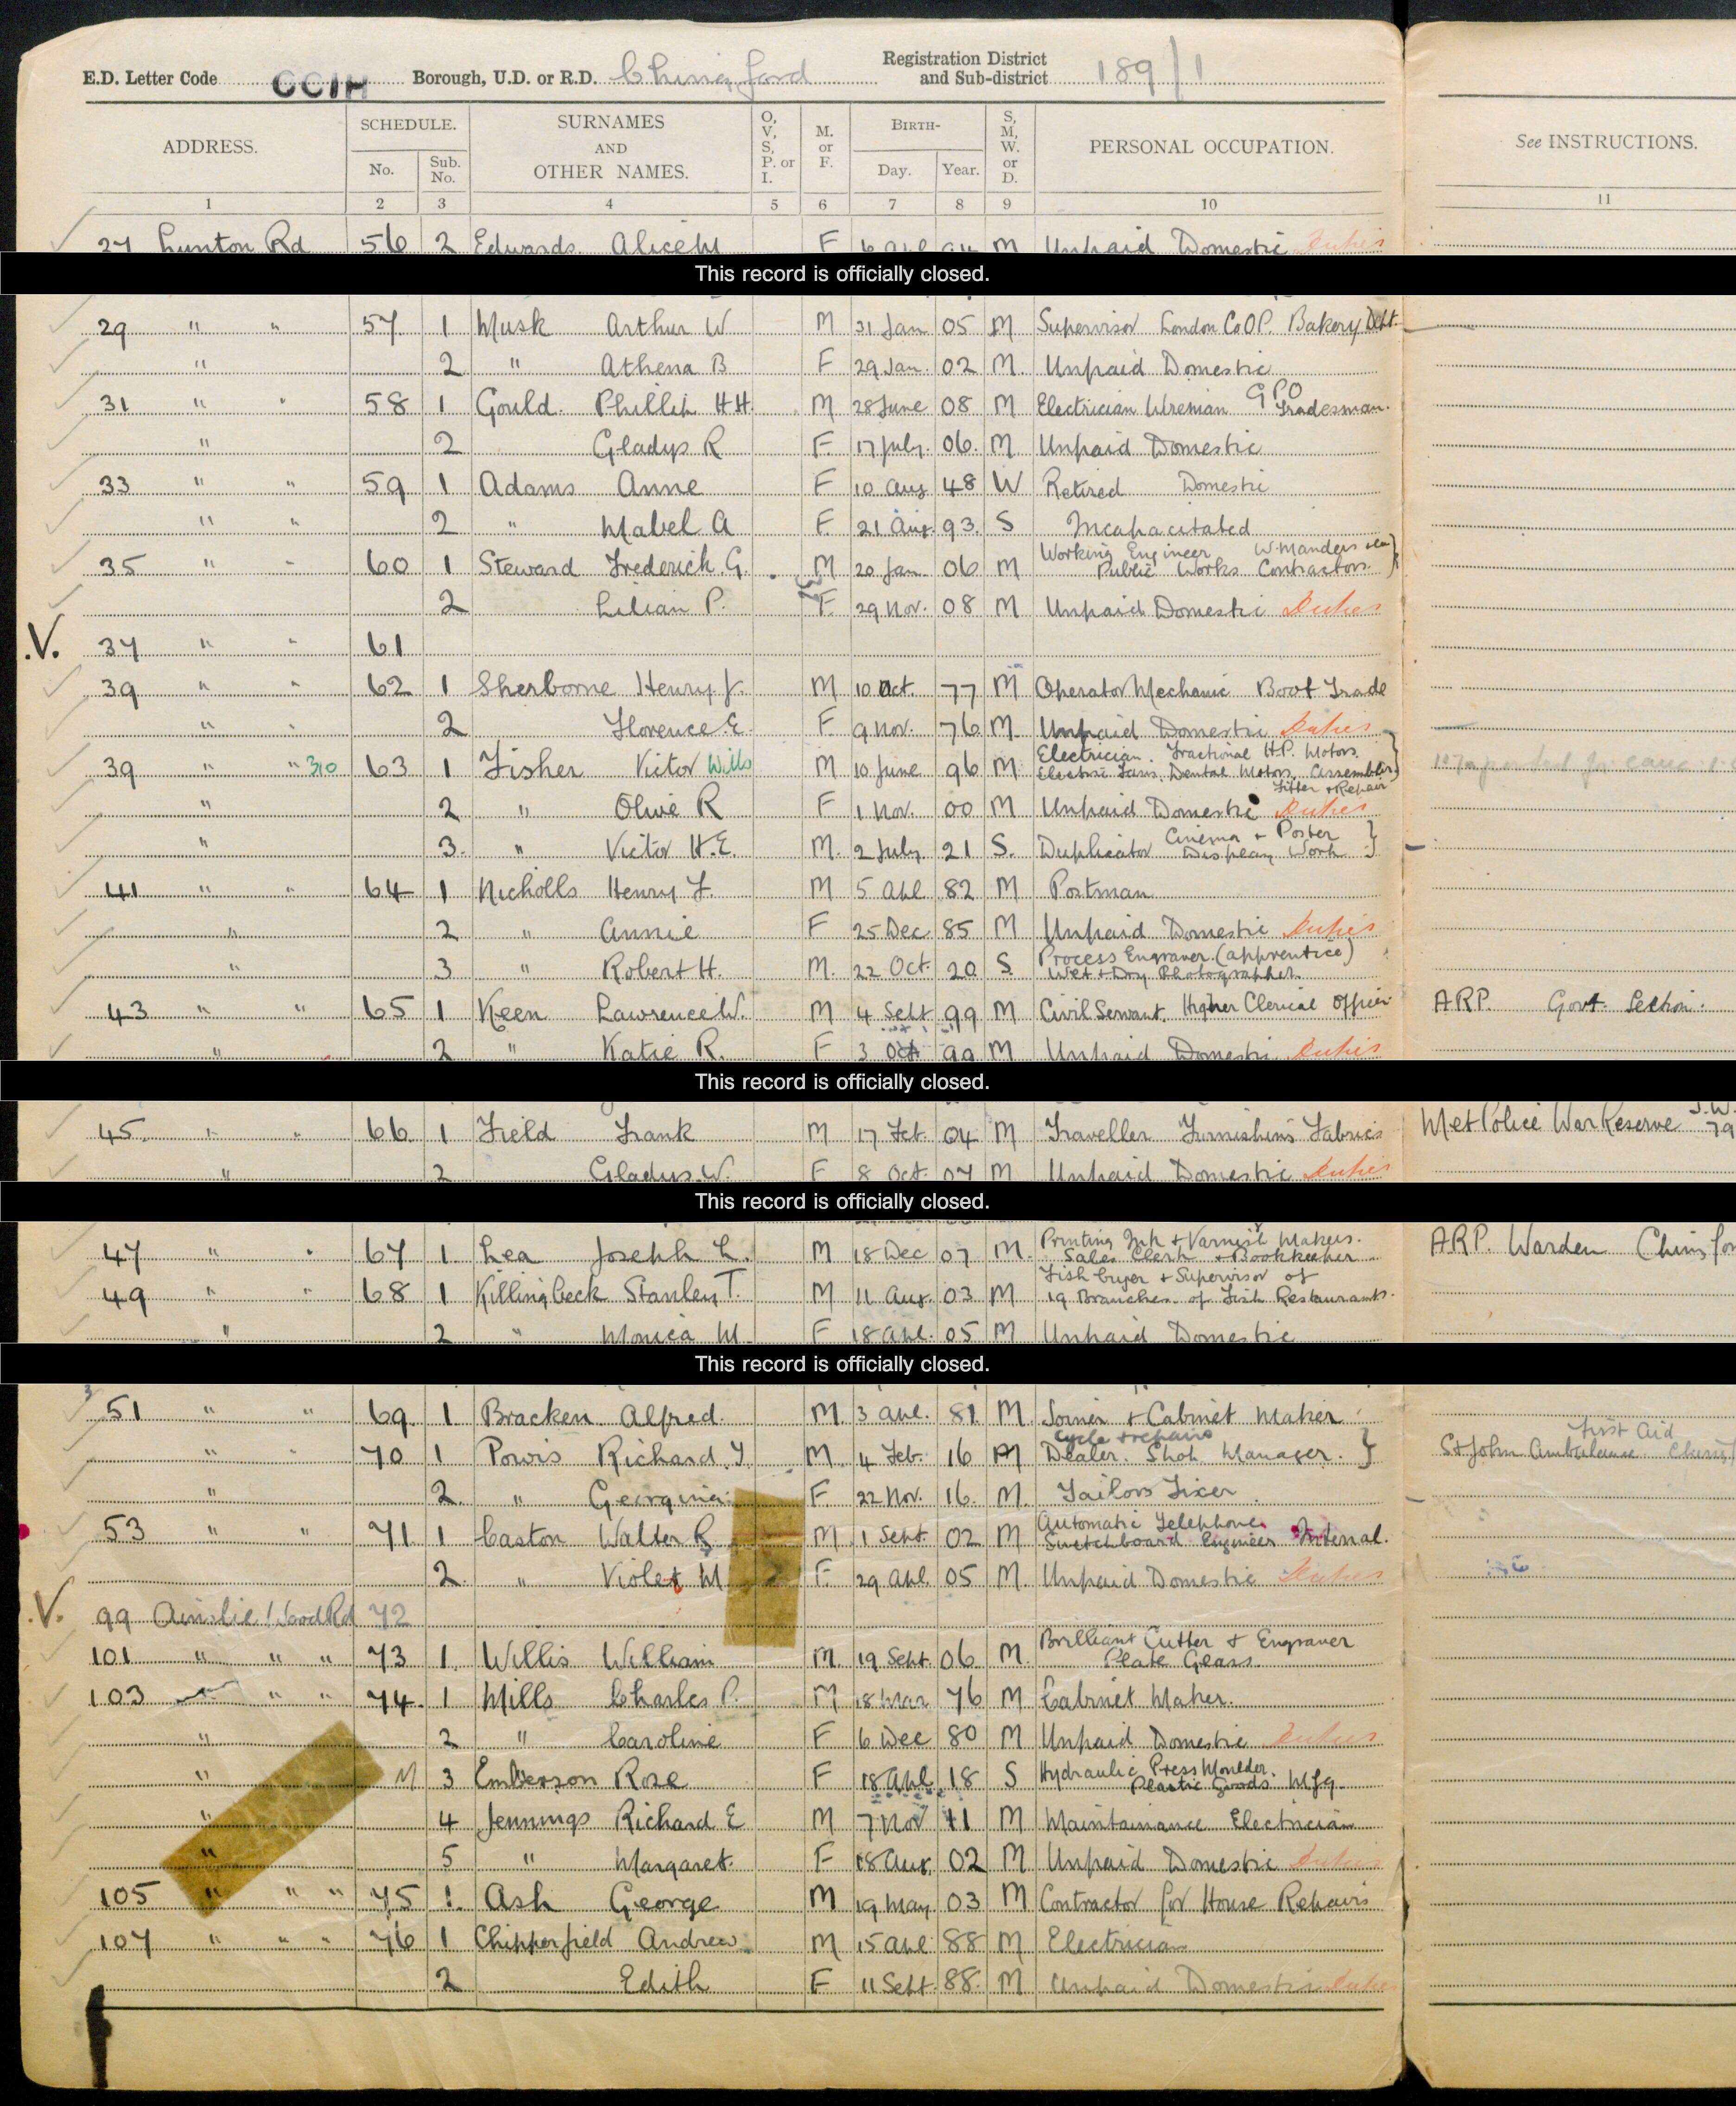 E.D. Letter Code CCIH Borough, U.D. or R.D. Chingford Registration District and Sub-district 189/1
ADDRESS. SCHEDULE. No. Sub. No. SURNAMES AND OTHER NAMES. O, V, S, P. or I. M. or F. BIRTH- Day. Year. S, M, W. or D. PERSONAL OCCUPATION. See INSTRUCTIONS.
1 2 3 4 5 6 7 8 9 10 11
27 Lunton Rd 56 2 Edwards Alice M F 6 apl M Unpaid Domestic Duties
This record is officially closed.
29 " " 57 1 Musk Arthur W M 31 Jan 05 M Supervisor London Co.OP. Bakery Dept.
" 2 " Athena B F 29 Jan. 02 M. Unpaid Domestic
31 " " 58 1 Gould. Phillip H H. M 28 June 08 M Electrician Wireman GPO Tradesman.
" 2 Gladys R F. 17 July. 06. M. Unpaid Domestic
33 " " 59 1 Adams Anne F 10 Aug 48 W Retired Domestic
" " 2 " Mabel A F. 21 Aug. 93. S Incapacitated
35 " " 60 1 Steward Frederick. G. M 20 Jan 06 M Working Engineer W. Manders
Public Works Contractors. }
2 Lilian P. F. 29 Nov. 08 M Unpaid Domestic Duties
.V. 37 " " 61
39 " " 62 1 Sherborne Henry J. M 10 Oct. 77 M Operator Mechanic Boot Trade
" " 2 Florence. E. F 9 Nov. 76 M. Unpaid Domestic Duties
39 " " 310 63 1 Fisher Victor Wills M 10 June 96 M. Electrician. Fractional H.P. Motors.
Electric Fans. Dental Motors. Assembler }
Fitter + Repair
" 2 " Olive R F 1 Nov. 00 M Unpaid Domestic Duties
" 3. " Victor H.E. M. 2 July 21 S. Duplicator Cinema + Poster Display Work }
41 " " 64 1 Nicholls Henry F. M 5 apl 82 M Postman
" 2 " Annie F 25 Dec 85 M Unpaid Domestic Duties
" 3 " Robert H. M. 22 Oct. 20 S. Process Engraver. (apprentice)
Wet + Dry Photographer.
43 " " 65 1 Keen Lawrence W. M 4 Sept 99 M Civil Servant. Higher Clerical Officer ARP. Govt. Section.
" 2 " Katie R. F 3 Oct 99 M Unpaid Domestic Duties
This record is officially closed.
45. " " 66 1 Field Frank M 17 04 M Traveller Furnishing Fabrics Met Police War Reserve
" 2 Gladys. W. F 8 Oct. 07 M Unpaid Domestic Duties
This record is officially closed.
47 " " 67 1. Lea Joseph L. M 18 Dec 07 M. Printing Ink + Varnish Makers.
Sales Clerk + Bookkeeper ARP. Warden
49 " " 68 1 Killingbeck Stanley T. M 11 Aug. 03 M Fish buyer + Supervisor of
19 Branches of Fish Restaurants.
" 2 " Monica M. F 18 apl. 05 M Unpaid Domestic
This record is officially closed.
51 " " 69. 1 Bracken Alfred. M. 3 apl. 81. M. Joiner + Cabinet Maker
" " 70 1 Powis Richard. J. M. 4 Feb. 16 M Cycle + repairs
Dealer. Shop Manager. } St John Ambulance First Aid
" 2. " Georgina. F. 22 Nov. 16. M. Tailors Fixer
53 " " 71 1 Caston Walter R M 1 Sept. 02 M Automatic Telephone
Switchboard Engineer Internal.
2. " Violet M F. 29 apl. 05 M. Unpaid Domestic Duties
.V. 99 Ainslie Wood Rd 72
101 " " " 73 1. Willis William M. 19 Sept. 06 M. Brilliant Cutter + Engraver
Plate Glass.
103 " " 74. 1 Mills Charles P. M 18 Mar 76 M. Cabinet Maker.
" 2 " Caroline F 6 Dec 80 M Unpaid Domestic Duties
" M 3 Emberson Rose F 18 apl 18 S Hydraulic Press Moulder.
Plastic Goods Mfg.
" 4 Jennings Richard E M 7 Nov 11 M Maintainance Electrician
" 5 " Margaret. F 18 Aug. 02 M Unpaid Domestic Duties
105 " " " 75 1. Ash George M 19 May 03 M Contractor for House Repairs
107 " " " 76 1 Chipperfield Andrew. M 15 apl 88 M Electrician
2 Edith F 11 Sept. 88. M Unpaid Domestic Duties